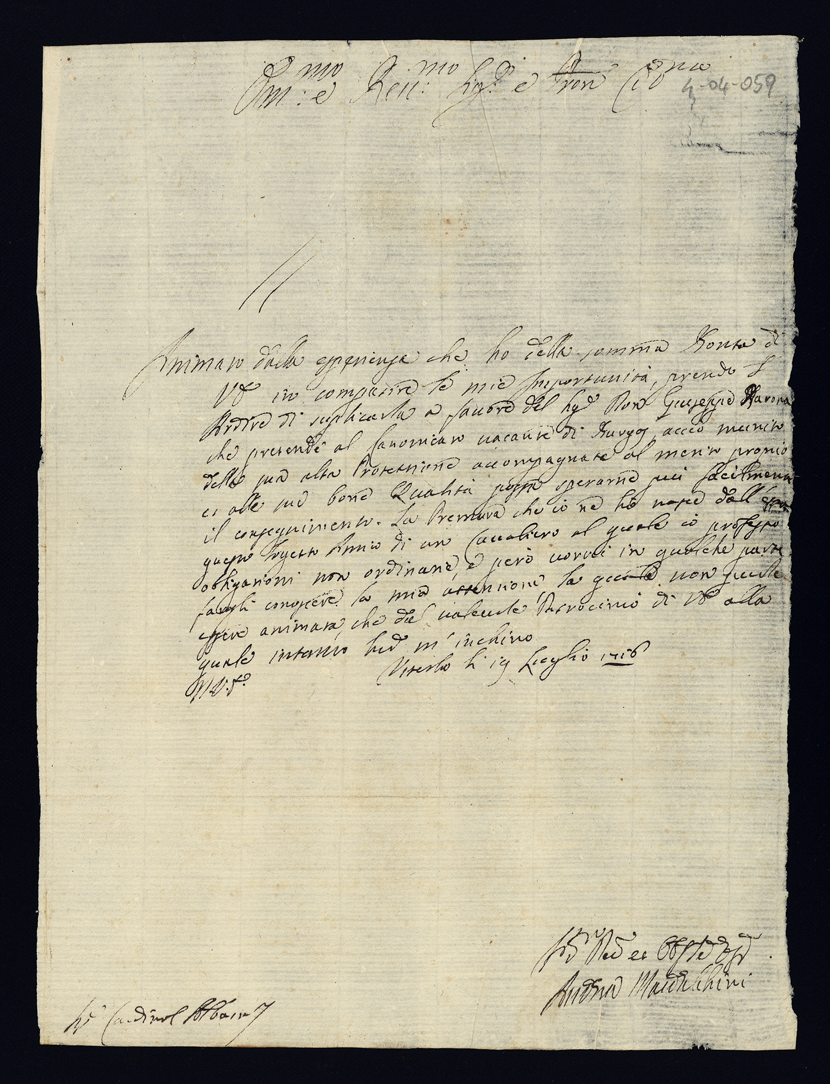 Em:mo e Reu:mo Sig:r e Pron
4-04-059
Animato dalla esperienza che ho della somma Bontà di
VE in compatire le mie Importunità, prendo l'
Ardire di suplicarla a favore del Sig:r Giuseppe
che pretende al Canonicato vacante di acciò munito
della sua alta Protezzione accompagnate al merito proprio
et alle sue bone Qualità possa sperarne più facilmente
il conseguimento. La Premura che io ne ho nasce dall'
questo sogetto Amio di un Cavaliero al quale io professo
obligazioni non ordinarie, e però vorrei in qualche parte
farli conoscere la mia attenzione, la quale non puole
essere animata che dal valevole Patrocinio di VE alla
quale intanto m'inchino
Viterbo li 19 Luglio 1716
Andrea Maidalchini
Sig:r Cardinal Albani